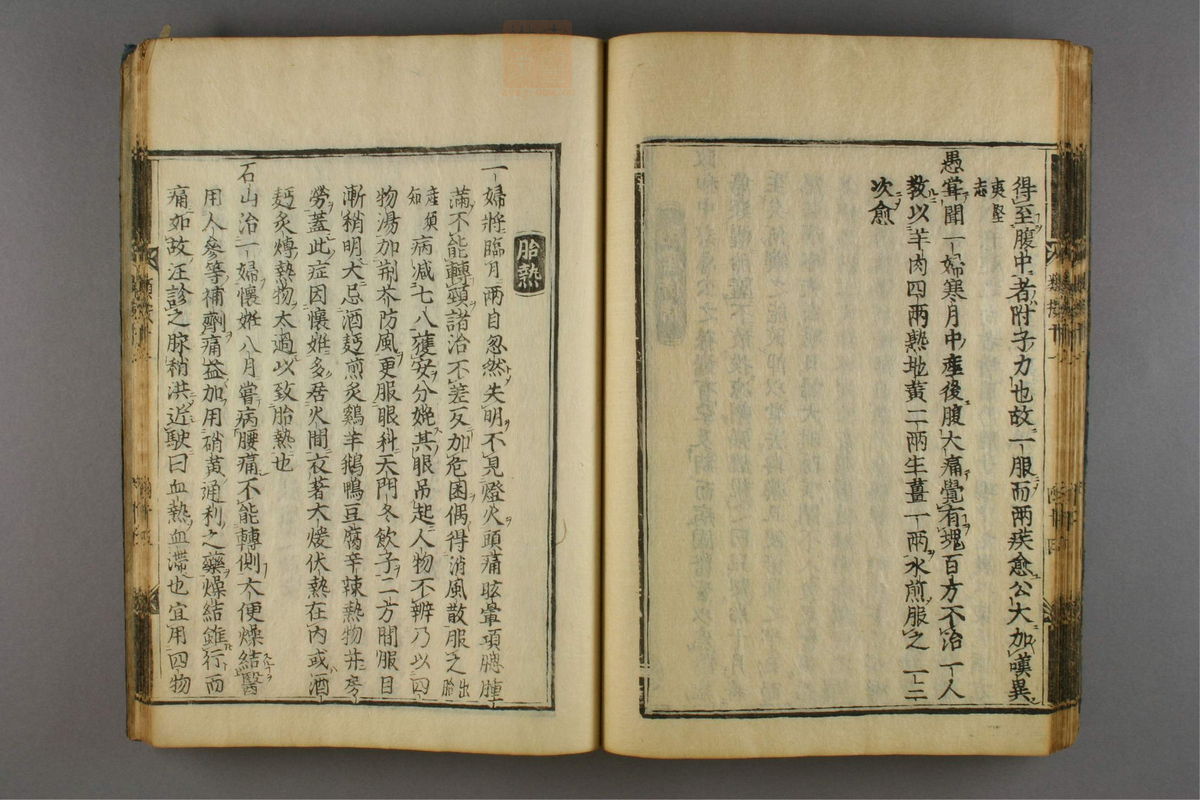 得至腹中者附子力也故一服而兩疾愈公大加嘆異
夷堅
志
愚嘗聞一婦寒月中產後腹大痛覺有塊百方不治一人
教以羊肉四兩熟地黃二兩生薑一兩水煎服之一二
次愈
胎熱
一婦將臨月兩目忽然失明不見燈火頭痛眩暈項腮腫
滿不能轉頸諸治不差反加危困偶得消風散服之
出胎產須知
病減七八獲安分娩其眼吊起人物不辨乃以四
物湯加荆芥防風更服眼科天門冬飲子二方間服目
漸稍明大忌酒麪煎炙鷄羊鵝鴨豆腐辛辣熱物并房
勞蓋此症因懷姙多居火間衣著大煖伏熱在內或酒
麪炙煿熱物太過以致胎熱也
石山治一婦懷姙八月嘗病腰痛不能轉側大便燥結醫
用人參等補劑痛益加用硝黃通利之藥燥結雖行而
痛如故汪診之脉稍洪近駛曰血熱血滯也宜用四物